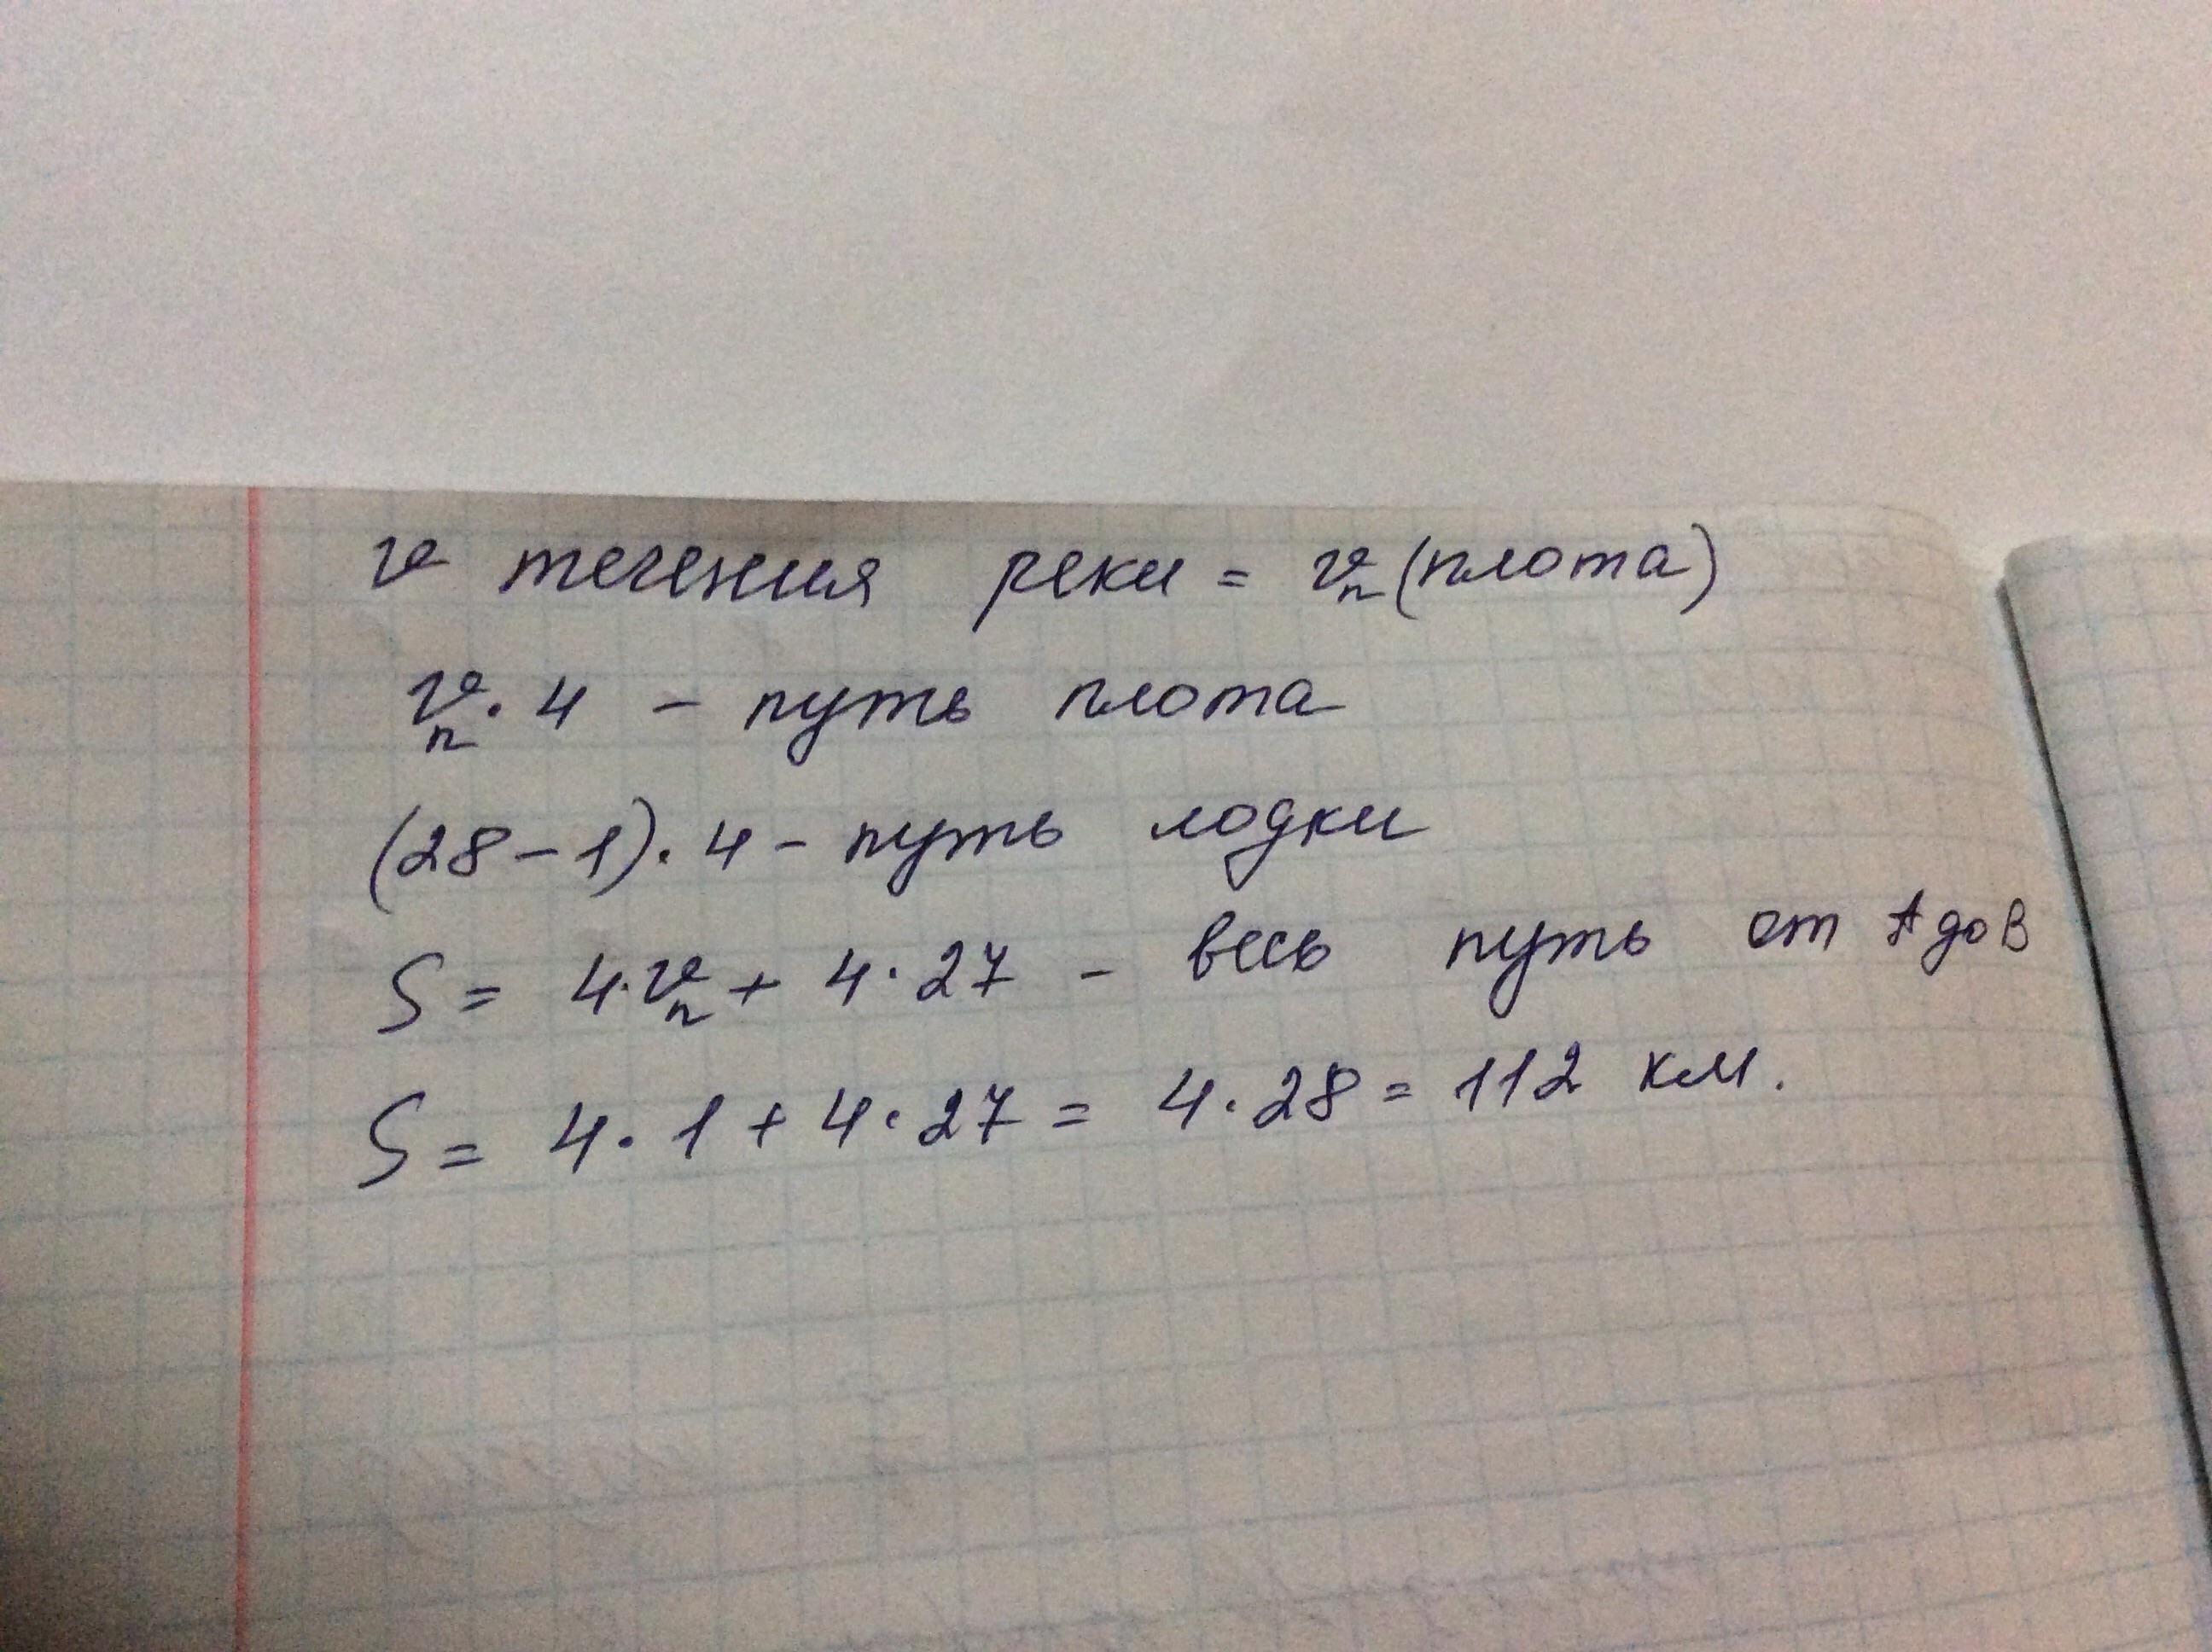 v течения реки = vп (плота)
vп · 4 – путь плота
(28 – 1) · 4 – путь лодки
S = 4 · vп + 4 · 27 – весь путь от A до B
S = 4 · 1 + 4 · 27 = 4 · 28 = 112 км.